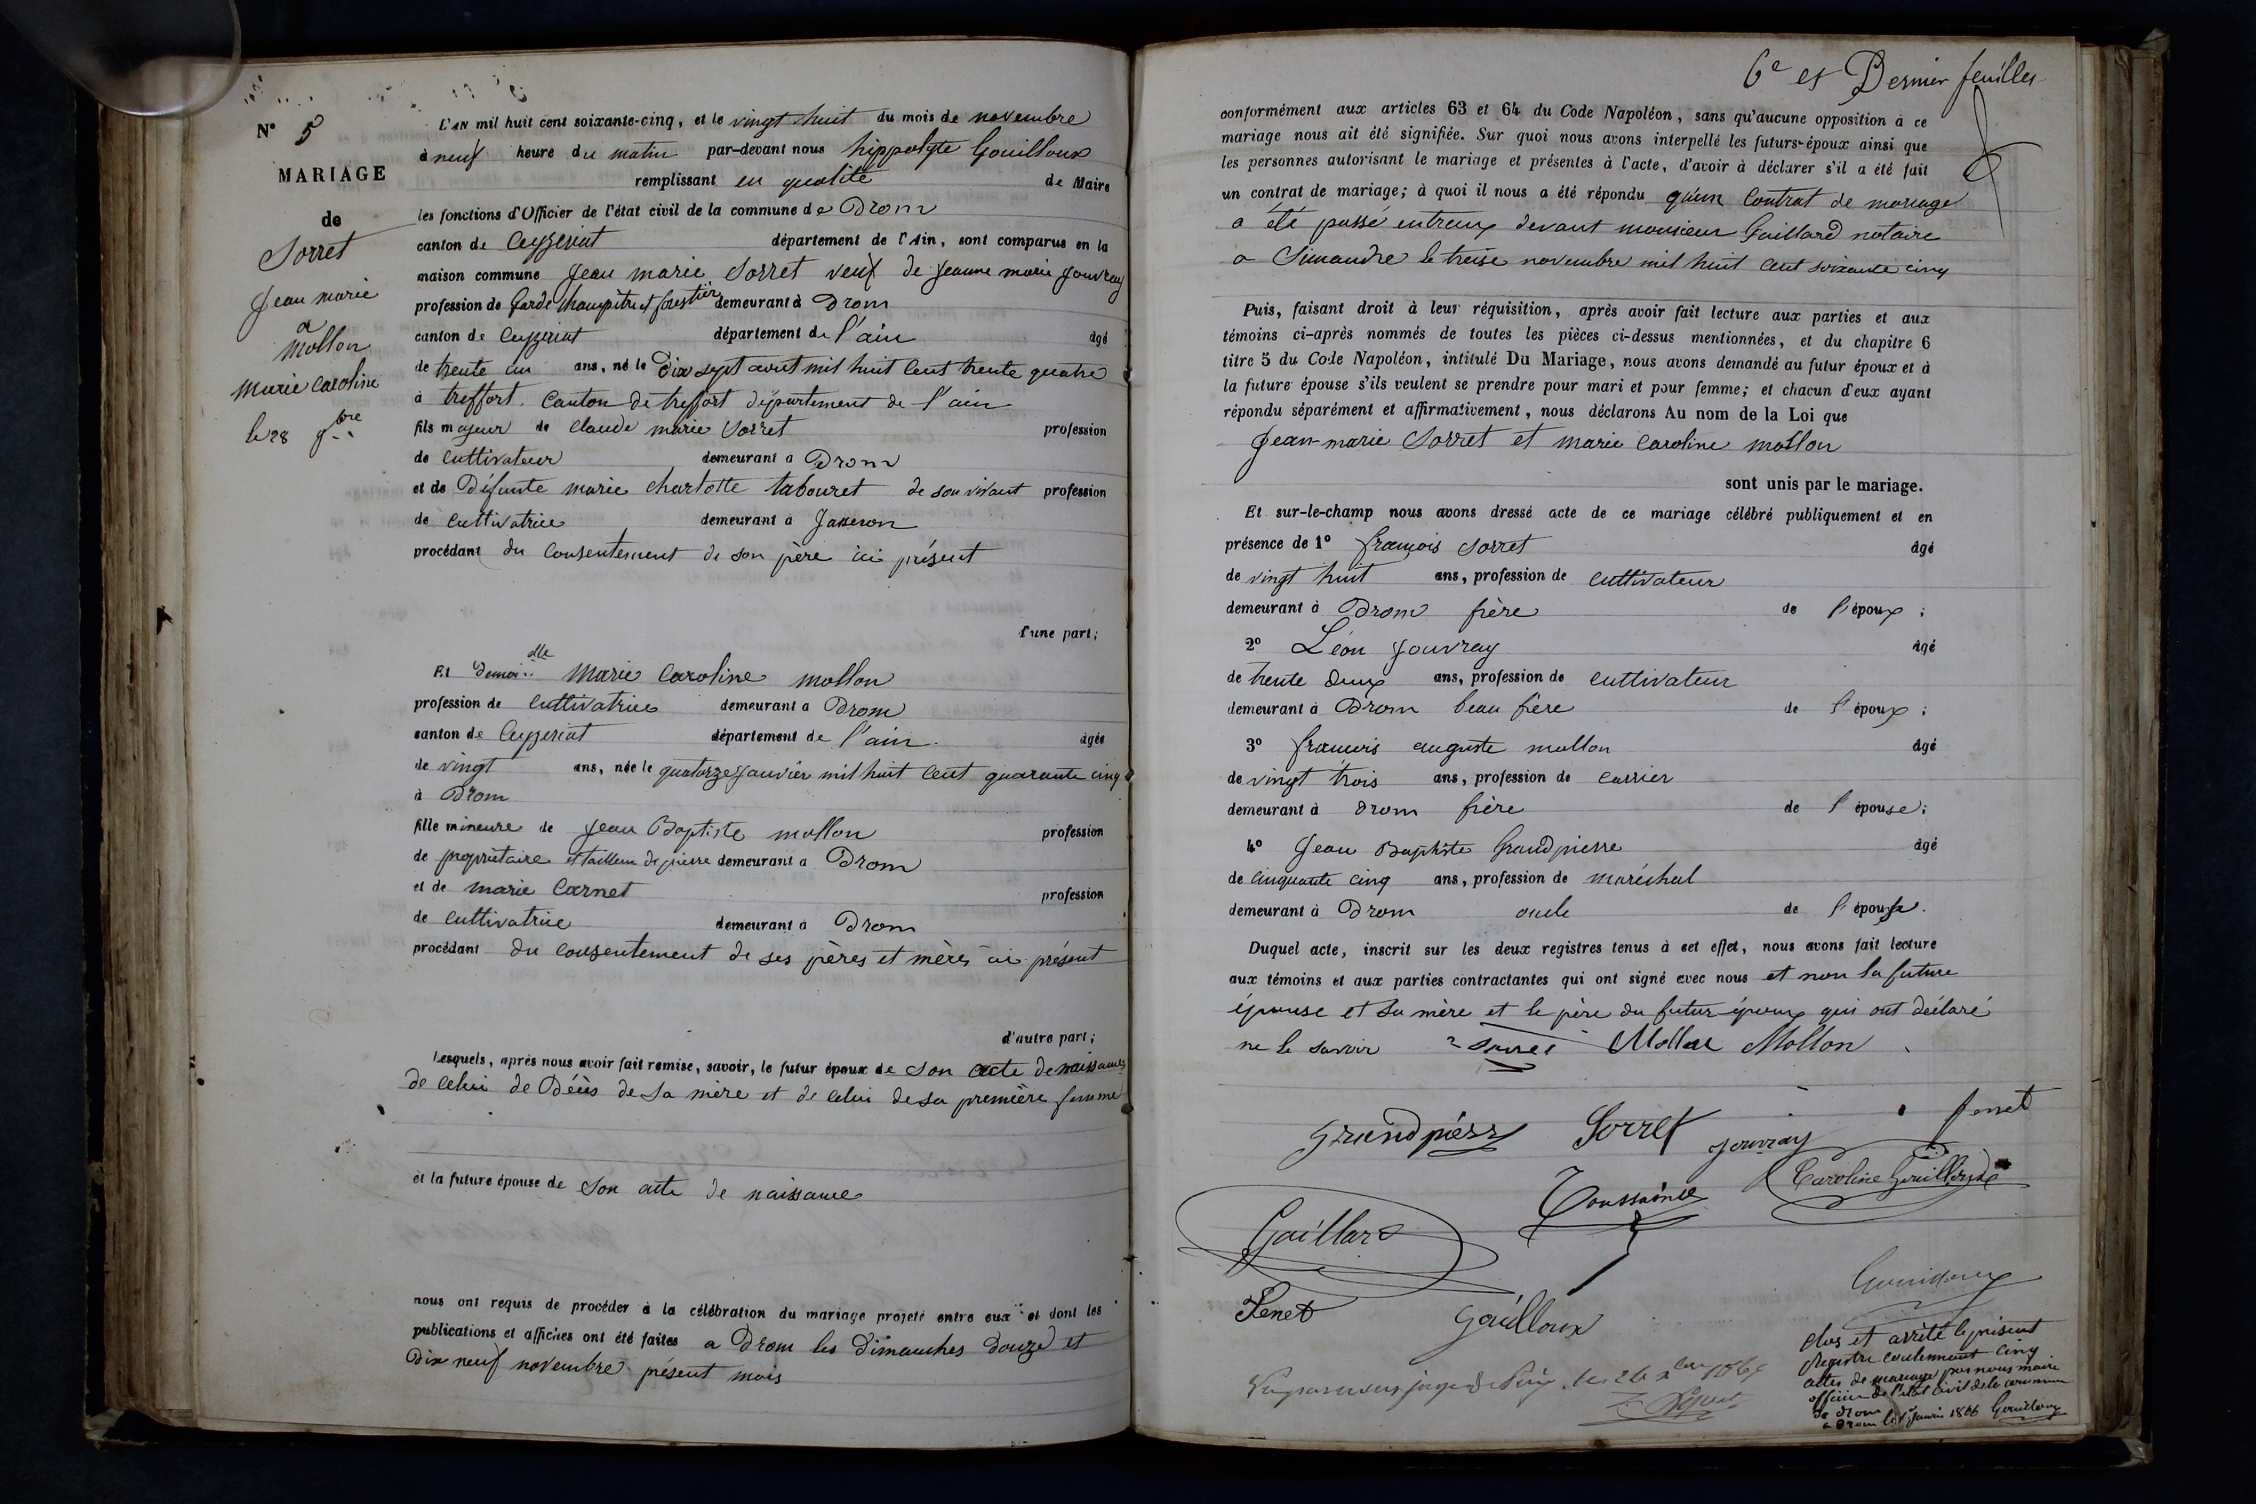 N° 5
MARIAGE
de
Sorret
Jean marie
a
mollon
marie caroline
le 28 9bre
L'AN mil huit cent soixante-cinq, et le vingt huit du mois de novembre
à neuf heure du matin par-devant nous hippolyte Gouilloux
remplissant en qualité de Maire
les fonctions d'Officier de l'état civil de la commune de Drom
canton de Ceyzeriat département de l'Ain, sont comparus en la
maison commune Jean marie Sorret veuf de Jeanne marie Jouvray
profession de Garde Champêtre et forestier demeurant à Drom
canton de Ceyzeriat département de l'ain âgé
de trente un ans, né le Dix sept aout mil huit cent trente quatre
à treffort. Canton de treffort département de l'ain
fils majeur de Claude marie Sorret profession
de cultivateur demeurant à Drom
et de Défunte marie charlotte tabouret de son vivant profession
de cultivatrice demeurant à Jasseron
procédant du consentement de son père ici présent
d'une part;
Et demoiselle Marie Caroline mollon
profession de Cultivatrice demeurant à Drom
canton de Ceyzeriat département de l'ain. âgée
de vingt ans, née le quatorze Janvier mil huit cent quarante cinq
à Drom
fille mineure de Jean Baptiste mollon profession
de propriétaire et tailleur de pierre demeurant à Drom
et de marie Carnet profession
de cultivatrice demeurant à Drom
procédant du consentement de ses pères et mères ici présent
d'autre part;
Lesquels, après nous avoir fait remise, savoir, le futur époux de son acte de naissance
de celui de Décès de sa mère et de celui de sa première femme
et la future épouse de son acte de naissance
nous ont requis de procéder à la célébration du mariage projeté entre eux et dont les
publications et affiches ont été faites a Drom les Dimanches douze et
Dix neuf novembre présent mois
6e et Dernier feuillet
conformément aux articles 63 et 64 du Code Napoléon, sans qu'aucune opposition à ce
mariage nous ait été signifiée. Sur quoi nous avons interpellé les futurs-époux ainsi que
les personnes autorisant le mariage et présentes à l'acte, d'avoir à déclarer s'il a été fait
un contrat de mariage; à quoi il nous a été répondu qu'un Contrat de mariage
a été passé entreux devant monsieur Gaillard notaire
a Simandre le treise novembre mil huit cent soixante cinq
Puis, faisant droit à leur réquisition, après avoir fait lecture aux parties et aux
témoins ci-après nommés de toutes les pièces ci-dessus mentionnées, et du chapitre 6
titre 5 du Code Napoléon, intitulé Du Mariage, nous avons demandé au futur époux et à
la future épouse s'ils veulent se prendre pour mari et pour femme; et chacun d'eux ayant
répondu séparément et affirmativement, nous déclarons Au nom de la Loi que
Jean-marie Sorret et marie caroline mollon
sont unis par le mariage.
Et sur-le-champ nous avons dressé acte de ce mariage célébré publiquement et en
présence de 1° françois Sorret âgé
de vingt huit ans, profession de cultivateur
demeurant à Drom frère de l'époux;
2° Léon Jouvray âgé
de trente deux ans, profession de cultivateur
demeurant à Drom beau frère de l'époux;
3° françois auguste mollon âgé
de vingt trois ans, profession de carrier
demeurant à Drom frère de l'épouse;
4° Jean Baptiste Grandpierre âgé
de cinquante cinq ans, profession de maréchal
demeurant à Drom oncle de l'épouse.
Duquel acte, inscrit sur les deux registres tenus à cet effet, nous avons fait lecture
aux témoins et aux parties contractantes qui ont signé avec nous et non la future
épouse et sa mère et le père du futur époux qui ont déclaré
ne le savoir Sorret Mollon Mollon
Grandpierr Sorret Jouvray fenet
Toussaint Caroline Gouilloux
Gaillard
Penet Gouilloux
Gouilloux
Clos et arrêté le présent
Registre contenant cinq
actes de mariage par nous maire
officier de l'état civil de la commune
de Drom
a Drom le 1er Janvier 1866 Gouilloux